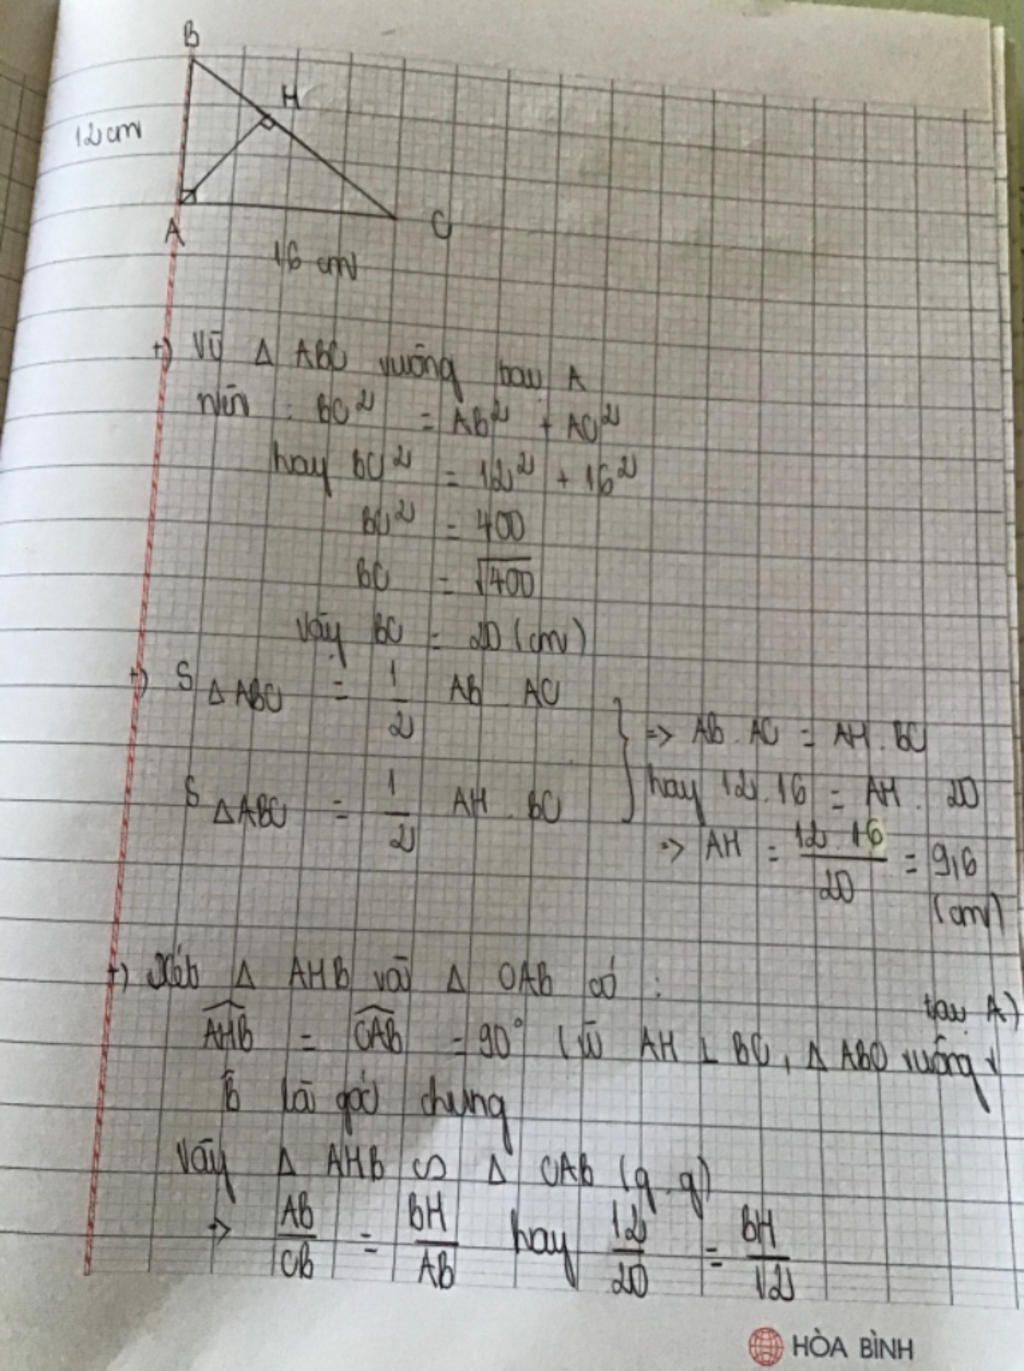 B
H
12cm
A
C
16 cm
+) Vì Δ ABC vuông tại A
nên : BC² = AB² + AC²
hay BC² = 12² + 16²
BC² = 400
BC = √400
Vậy BC = 20 (cm)
+) S Δ ABC = 1/2 AB AC
S Δ ABC = 1/2 AH . BC
} => AB . AC = AH . BC
hay 12 . 16 = AH . 20
=> AH = 12 16/20 = 9,6
(cm)
+) Xét Δ AHB và Δ CAB có :
tại A)
AHB = CAB = 90° (vì AH ⊥ BC, Δ ABC vuông
B̂ là góc chung
Vậy Δ AHB ∽ Δ CAB (g.g)
=> AB/CB = BH/AB hay 12/20 = BH/12
HÒA BÌNH